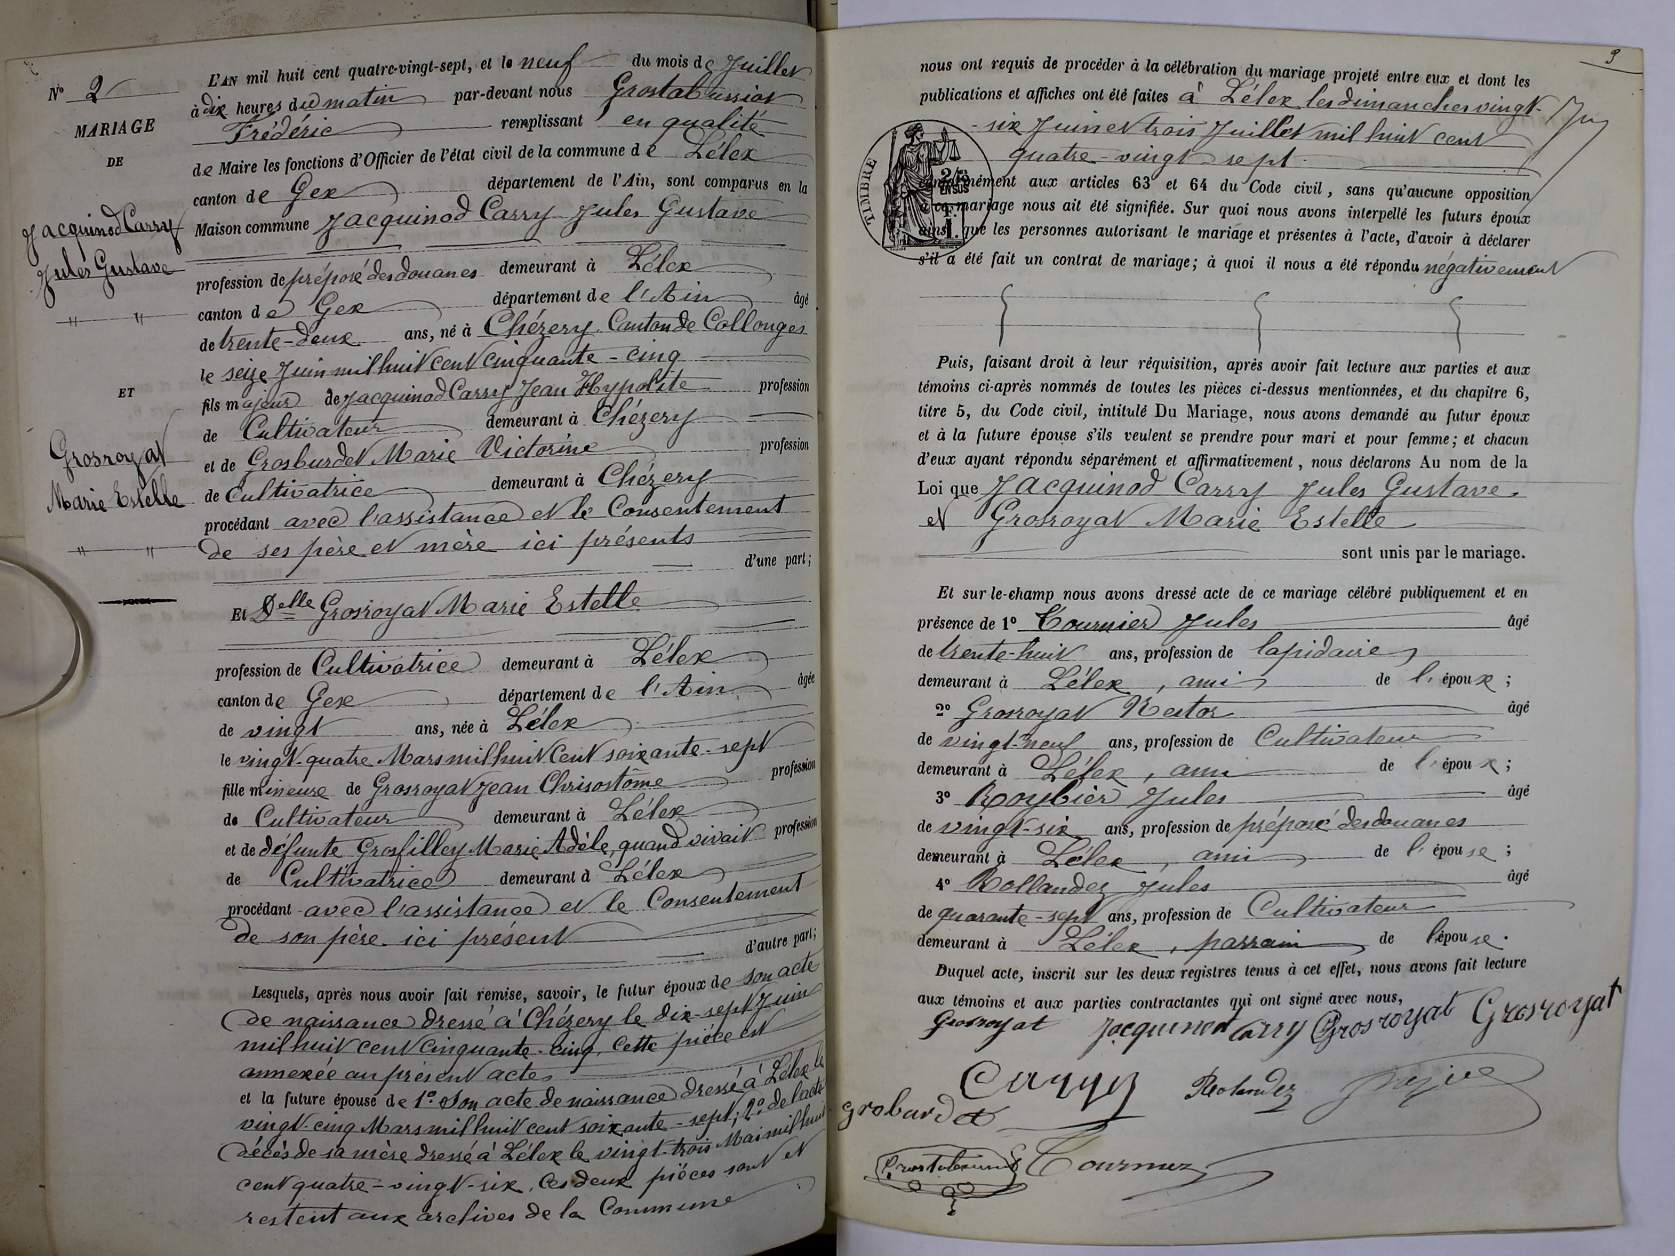 N° 2
MARIAGE
DE
Jacquinod Carry
Jules Gustave
" "
ET
Grosroyat
Marie Estelle
" "
L'AN mil huit cent quatre-vingt-sept, et le neuf du mois de Juillet
à dix heures du matin par-devant nous Grostabussiat
Frédéric remplissant en qualité
de Maire les fonctions d'Officier de l'état civil de la commune de Lélex
canton de Gex département de l'Ain, sont comparus en la
Maison commune Jacquinod Carry Jules Gustave
profession de préposé des douanes demeurant à Lélex
canton de Gex département de l'Ain âgé
de trente-deux ans, né à Chézery Canton de Collonges
le seize Juin mil huit cent cinquante-cinq
fils majeur de Jacquinod Carry Jean Hypolite profession
de Cultivateur demeurant à Chézery
et de Grosburdet Marie Victorine profession
de Cultivatrice demeurant à Chézery
procédant avec l'assistance et le Consentement
de ses père et mère ici présents
d'une part;
Et Delle Grosroyat Marie Estelle
profession de Cultivatrice demeurant à Lélex
canton de Gex département de l'Ain âgée
de vingt ans, née à Lélex
le vingt-quatre Mars mil huit Cent soixante-sept
fille mineure de Grosroyat Jean Chrisostôme profession
de Cultivateur demeurant à Lélex
et de défunte Grosfilley Marie Adèle, quand vivait profession
de Cultivatrice demeurant à Lélex
procédant avec l'assistance et le Consentement
de son père ici présent
d'autre part;
Lesquels, après nous avoir fait remise, savoir, le futur époux de son acte
de naissance dressé à Chézery le dix-sept Juin
mil huit cent cinquante-cinq, cette pièce est
annexée au présent acte
et la future épouse de 1° son acte de naissance dressé à Lélex le
vingt-cinq Mars mil huit cent soixante-sept; 2° de l'acte
décès de sa mère dressé à Lélex le vingt-trois Mai mil huit
cent quatre-vingt-six, Ces deux pièces sont et
restent aux archives de la Commune
3
nous ont requis de procéder à la célébration du mariage projeté entre eux et dont les
publications et affiches ont été faites à Lélex les dimanches vingt-
six Juin et trois Juillet mil huit cent
quatre-vingt sept
TIMBRE
2/10
EN SUS
conformément aux articles 63 et 64 du Code civil, sans qu'aucune opposition
à ce mariage nous ait été signifiée. Sur quoi nous avons interpellé les futurs époux
ainsi que les personnes autorisant le mariage et présentes à l'acte, d'avoir à déclarer
s'il a été fait un contrat de mariage; à quoi il nous a été répondu négativement
Puis, faisant droit à leur réquisition, après avoir fait lecture aux parties et aux
témoins ci-après nommés de toutes les pièces ci-dessus mentionnées, et du chapitre 6,
titre 5, du Code civil, intitulé Du Mariage, nous avons demandé au futur époux
et à la future épouse s'ils veulent se prendre pour mari et pour femme; et chacun
d'eux ayant répondu séparément et affirmativement, nous déclarons Au nom de la
Loi que Jacquinod Carry Jules Gustave.
et Grosroyat Marie Estelle
sont unis par le mariage.
Et sur-le-champ nous avons dressé acte de ce mariage célébré publiquement et en
présence de 1° Tournier Jules âgé
de trente-huit ans, profession de lapidaire
demeurant à Lélex, ami de l'époux;
2° Grosroyat Nestor âgé
de vingt-neuf ans, profession de Cultivateur
demeurant à Lélex, ami de l'époux;
3° Roybier Jules âgé
de vingt-six ans, profession de préposé des douanes
demeurant à Lélex, ami de l'épouse;
4° Rollandez Jules âgé
de quarante-sept ans, profession de Cultivateur
demeurant à Lélex, parrain de l'épouse.
Duquel acte, inscrit sur les deux registres tenus à cet effet, nous avons fait lecture
aux témoins et aux parties contractantes qui ont signé avec nous,
Grosroyat Jacquinod Carry Grosroyat Grosroyat
Carry Rolandez
Grobard
Tournier